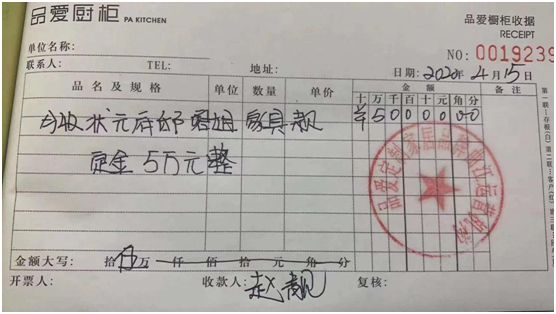 品爱厨柜 PA KITCHEN
品爱橱柜收据
RECEIPT
单位名称:
NO: 0019239
联系人: TEL: 地址: 日期: 2020年4月15日
品名及规格 单位 数量 单价 金额 备注
十万千百十元角分
今收状元府邸 家具款 ¥5000000
定金5万元整
金额大写: 拾伍万 仟 佰 拾 元 角 分
开票人: 收款人: 赵靓 复核:
品爱定制家居品牌 江运营机构